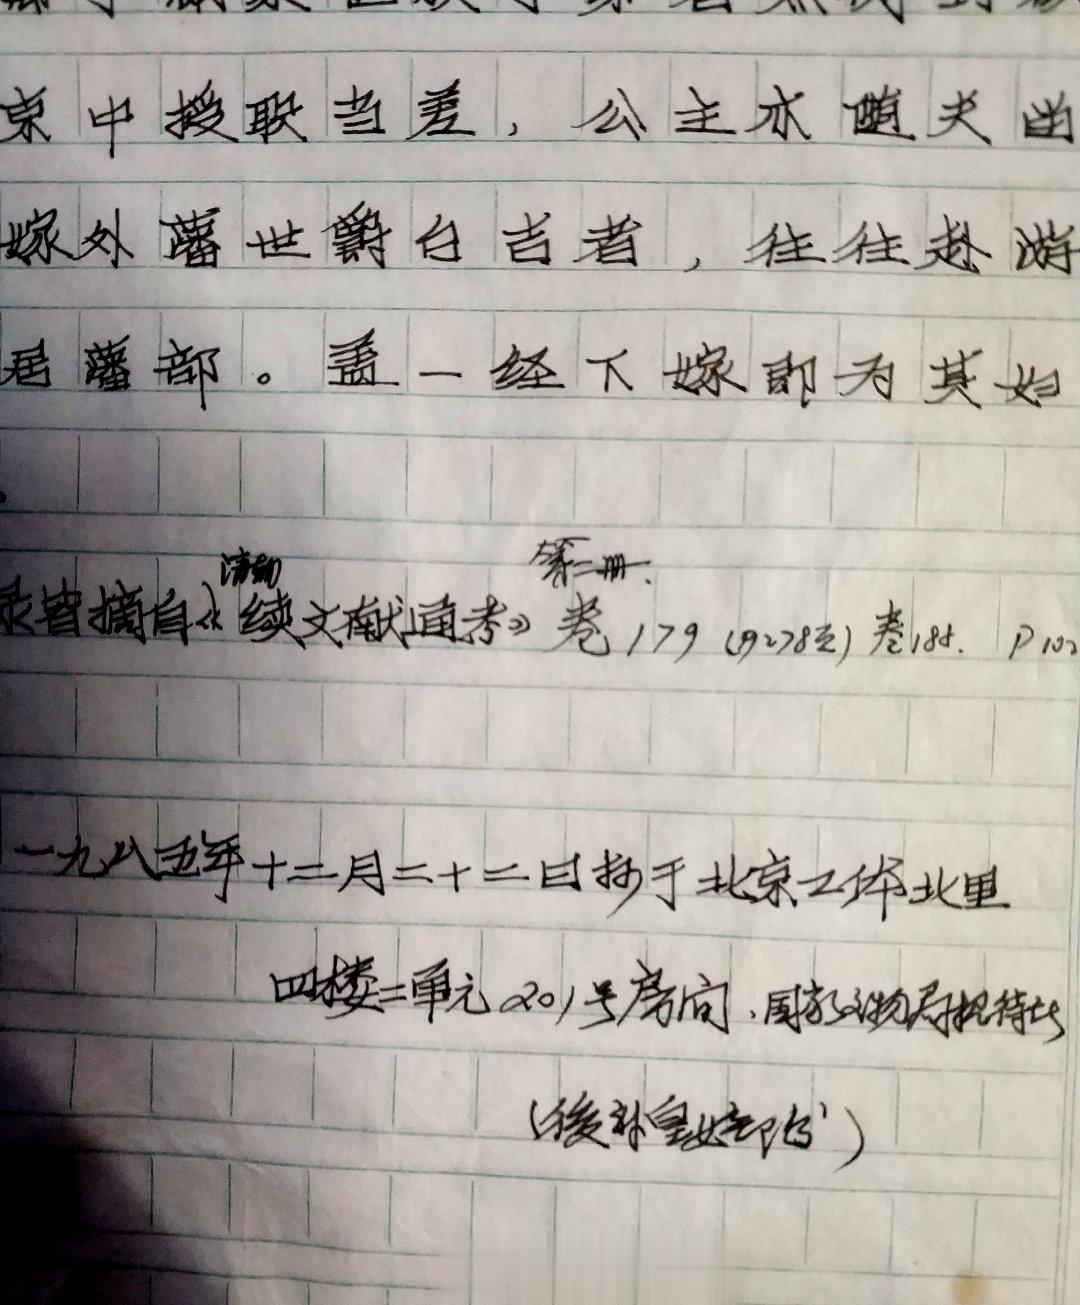 京中授职当差，公主亦随夫由
嫁外藩世爵台吉者，往往赴游
居藩部。盖一经下嫁即为其妇
清朝 第二册.
录皆摘自《续文献通考》卷179（P7278页）卷188. P102
一九八五年十二月二十二日抄于北京工体北里
四楼二单元201号房间、国家文物局招待所
（後补皇